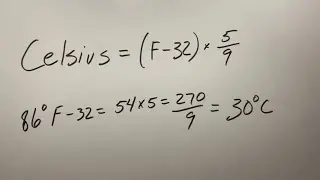 Celsius = (F-32) × 5/9
86°F-32 = 54×5 = 270/9 = 30°C